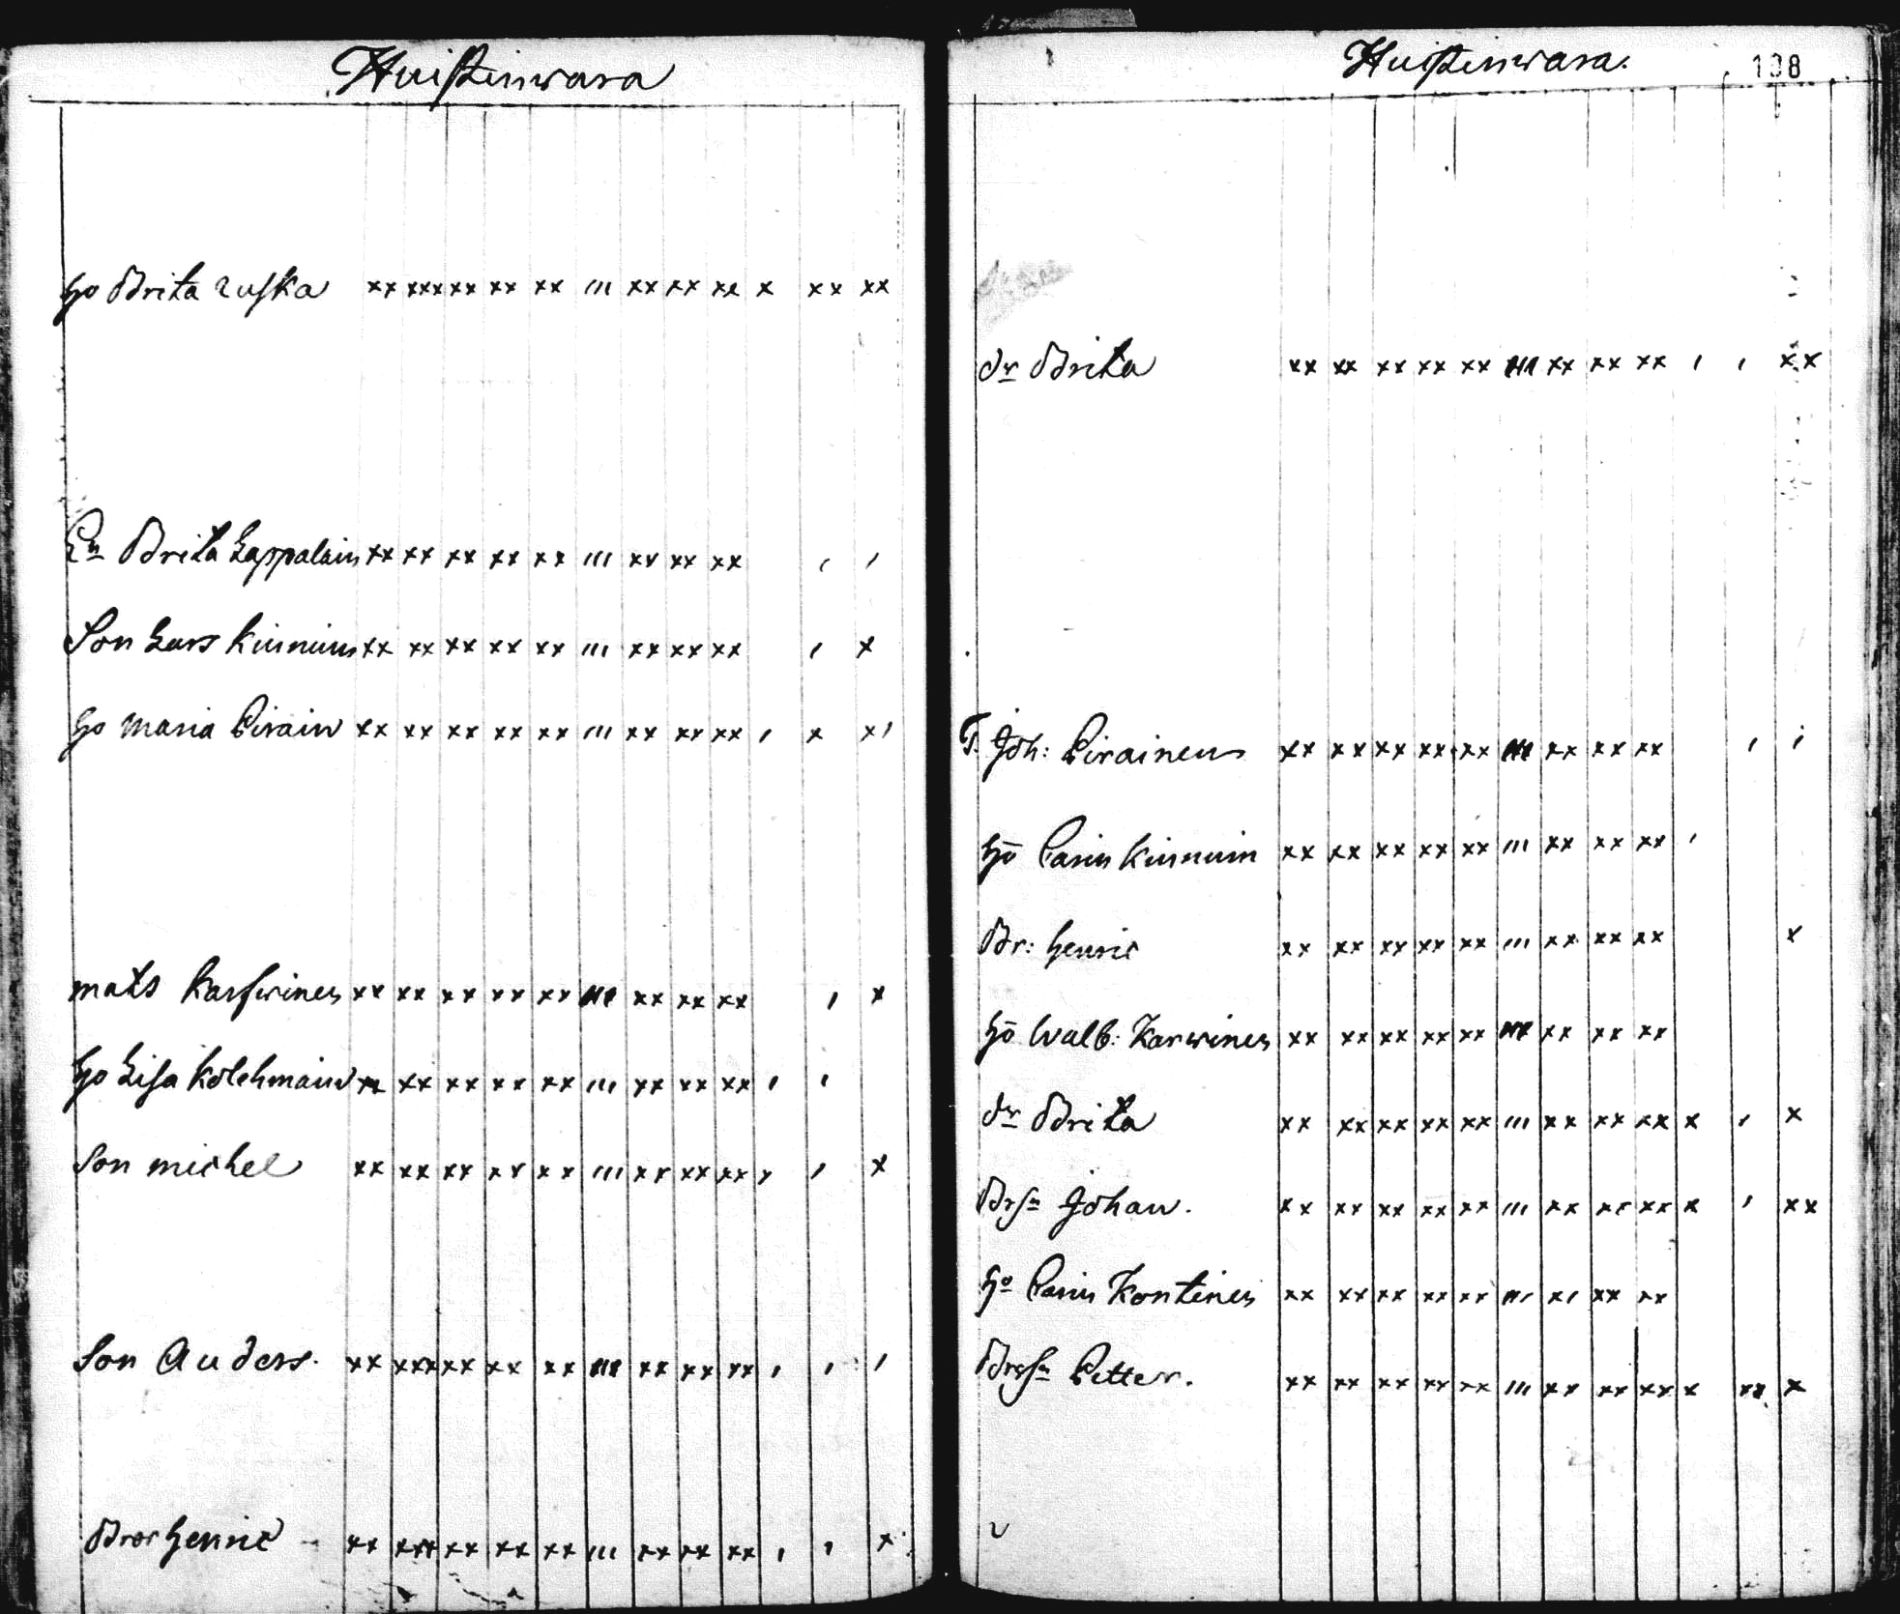 Huistinwara
Ho Brita Ruska xx xxx xx xx xx ııı xx xx xx x xx xx
En Brita Lappalain xx xx xx xx xx ııı xx xx xx , ,
Son Lars Kinnuin xx xx xx xx xx ııı xx xx xx , x
Ho Maria Pirain xx xx xx xx xx ııı xx xx xx , x x,
Mats Karhuinen xx xx xx xx xx ııı xx xx xx , x
Ho Lisa Kolehmain xx xx xx xx xx ııı xx xx xx , ,
Son Michel xx xx xx xx xx ııı xx xx xx , , x
Son Anders. xx xxx xx xx xx ııı xx xx xx , , ,
Bror Henric xx xxx xx xx xx ııı xx xx xx , , x
Huistinwara. 138
dr Brita xx xx xx xx xx ııı xx xx xx , , xx
T. Joh: Pirainen xx xx xx xx xx ııı xx xx xx , ,
Ho Carin Kinnuin xx xx xx xx xx ııı xx xx xx ,
Br: Henric xx xx xx xx xx ııı xx xx xx x
Ho Walb: Karwinen xx xx xx xx xx ııı xx xx xx
dr Brita xx xx xx xx xx ııı xx xx xx x , x
Brsn Johan. xx xx xx xx xx ııı xx xx xx x , xx
Ho Carin Kontinen xx xx xx xx xx ııı x, xx xx
Brsn Petter. xx xx xx xx xx ııı xx xx xx x xx x